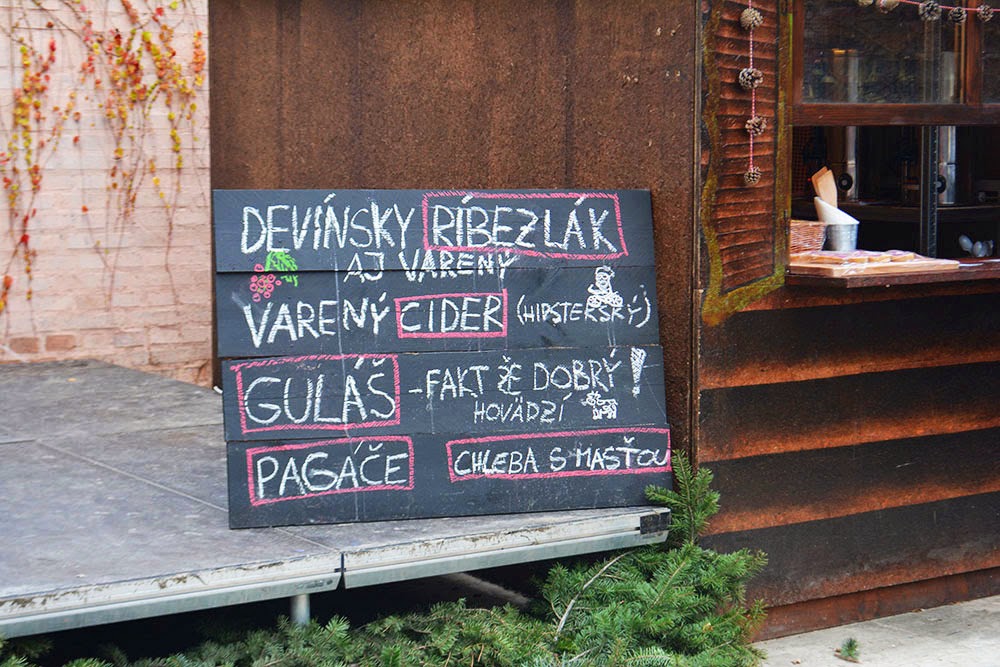 DEVÍNSKY RÍBEZLÁK
AJ VARENÝ
VARENÝ CIDER (HIPSTERSKÝ)
GULÁŠ - FAKT ŽE DOBRÝ!
HOVÄDZÍ
PAGÁČE CHLEBA S MASŤOU